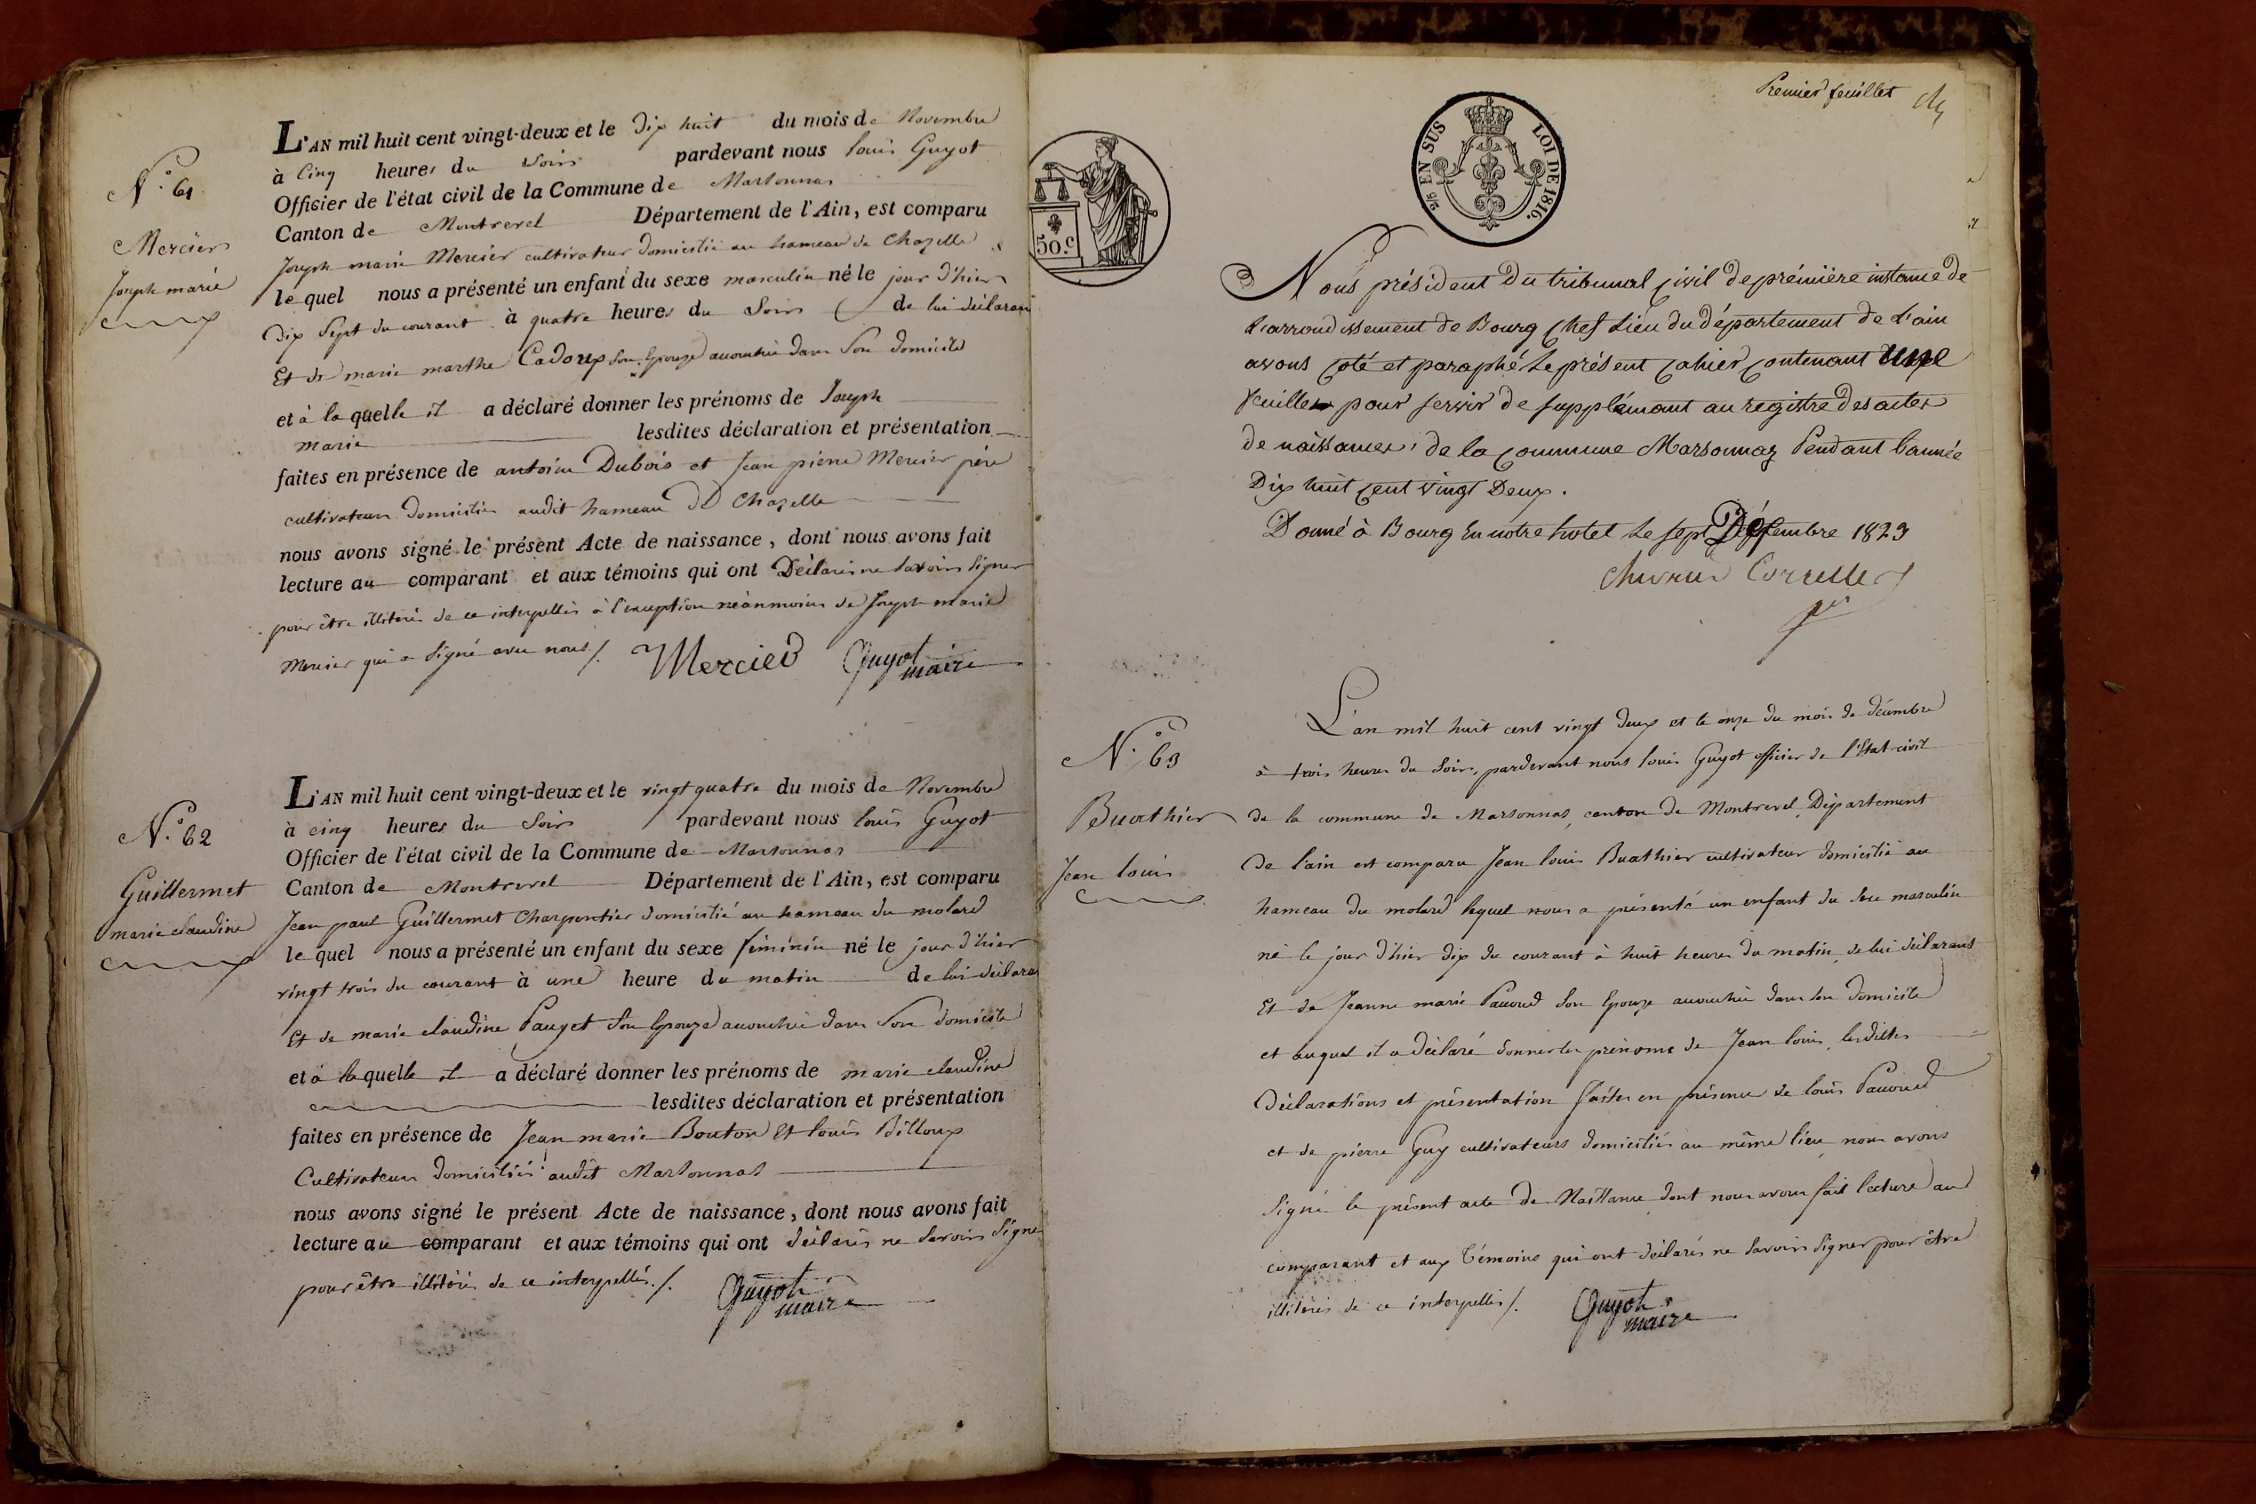 N.° 61
Mercier
Joseph marie
L'AN mil huit cent vingt-deux et le Dix huit du mois de Novembre
à Cinq heures du Soir pardevant nous louis Guyot
Officier de l'état civil de la Commune de Marsonnas
Canton de Montrevel Département de l'Ain, est comparu
Joseph marie Mercier cultivateur domicilié au hameau de Chazelle
le quel nous a présenté un enfant du sexe masculin né le jour d'hier
Dix Sept du courant à quatre heures du Soir de lui déclarant
Et de marie marthe Cadoux son Epouze accouchée dans Son domicile
et à la quelle il a déclaré donner les prénoms de Joseph
marie lesdites déclaration et présentation
faites en présence de antoine Dubois et Jean pierre Mercier père
cultivateurs domiciliés audit hameau de Chazelle
nous avons signé le présent Acte de naissance, dont nous avons fait
lecture au comparant et aux témoins qui ont Déclarés ne Savoir Signer
pour être illiterés de ce interpellés à l'exception néanmoins de Joseph marie
Mercier qui a Signé avec nous /. Mercier Guyot
maire
N.° 62
Guillermet
marie claudine
L'AN mil huit cent vingt-deux et le vingt quatre du mois de Novembre
à cinq heures du Soir pardevant nous louis Guyot
Officier de l'état civil de la Commune de Marsonnas
Canton de Montrevel Département de l'Ain, est comparu
Jean paul Guillermet Charpentier domicilié au hameau du molard
le quel nous a présenté un enfant du sexe féminin né le jour d'hier
vingt trois du courant à une heure du matin de lui déclarant
Et de marie claudine Pauget Son Epouze accouchée dans Son domicile
et à la quelle il a déclaré donner les prénoms de marie claudine
lesdites déclaration et présentation
faites en présence de Jean marie Bouton Et louis Billoux
Cultivateurs domiciliés audit Marsonnas
nous avons signé le présent Acte de naissance, dont nous avons fait
lecture au comparant et aux témoins qui ont déclarés ne Savoir Signer
pour être illitérés de ce interpellés. /. Guyot
maire
Premier feuillet
50.c
2/5 EN SUS LOI DE 1816.
Nous président du tribunal civil de première instance de
L'arrondissement de Bourg chef Lieu du département de L'ain
avons coté et paraphé Le présent cahier contenant une
feuille pour servir de supplément au registre des actes
de naissances de la commune Marsonnaz Pendant l'année
Dix huit cent vingt Deux.
Donné à Bourg En notre hotel Le sept Décembre 1823
N.° 63
Buathier
Jean louis
L'an mil huit cent vingt deux et le onze du mois de décembre
à trois heures du Soir, pardevant nous louis Guyot officier de l'état civil
de la commune de Marsonnas, canton de Montrevel, Département
De l'ain est comparu Jean louis Buathier cultivateur domicilié au
hameau du molard lequel nous a présenté un enfant du Sexe masculin
né le jour d'hier dix du courant à huit heures du matin, de lui déclarant
Et de Jeanne marie Pauoud Son Epouze accouchée dans Son domicile
et auquel il a déclaré donner les prénoms de Jean louis, lesdittes
Déclarations et présentation faites en présence de louis Pauoud
et de pierre Guy cultivateurs domiciliés au même lieu, nous avons
Signé le présent acte de Naissance dont nous avons fait lecture au
comparant et aux témoins qui ont déclarés ne Savoir Signer pour être
illitérés de ce interpellés /. Guyot
maire